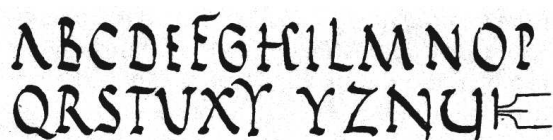 ABCDEFGHILMNOP
QRSTUXY YZNY